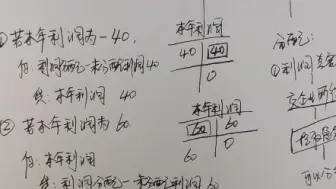 ①若本年利润为-40,
借:利润分配-未分配利润40
贷:本年利润 40
②若本年利润为60
借:本年利润
贷:利润分配-未分配利润60
本年利润
40 40
0
本年利润
60 60
60 0
分配:
①利润